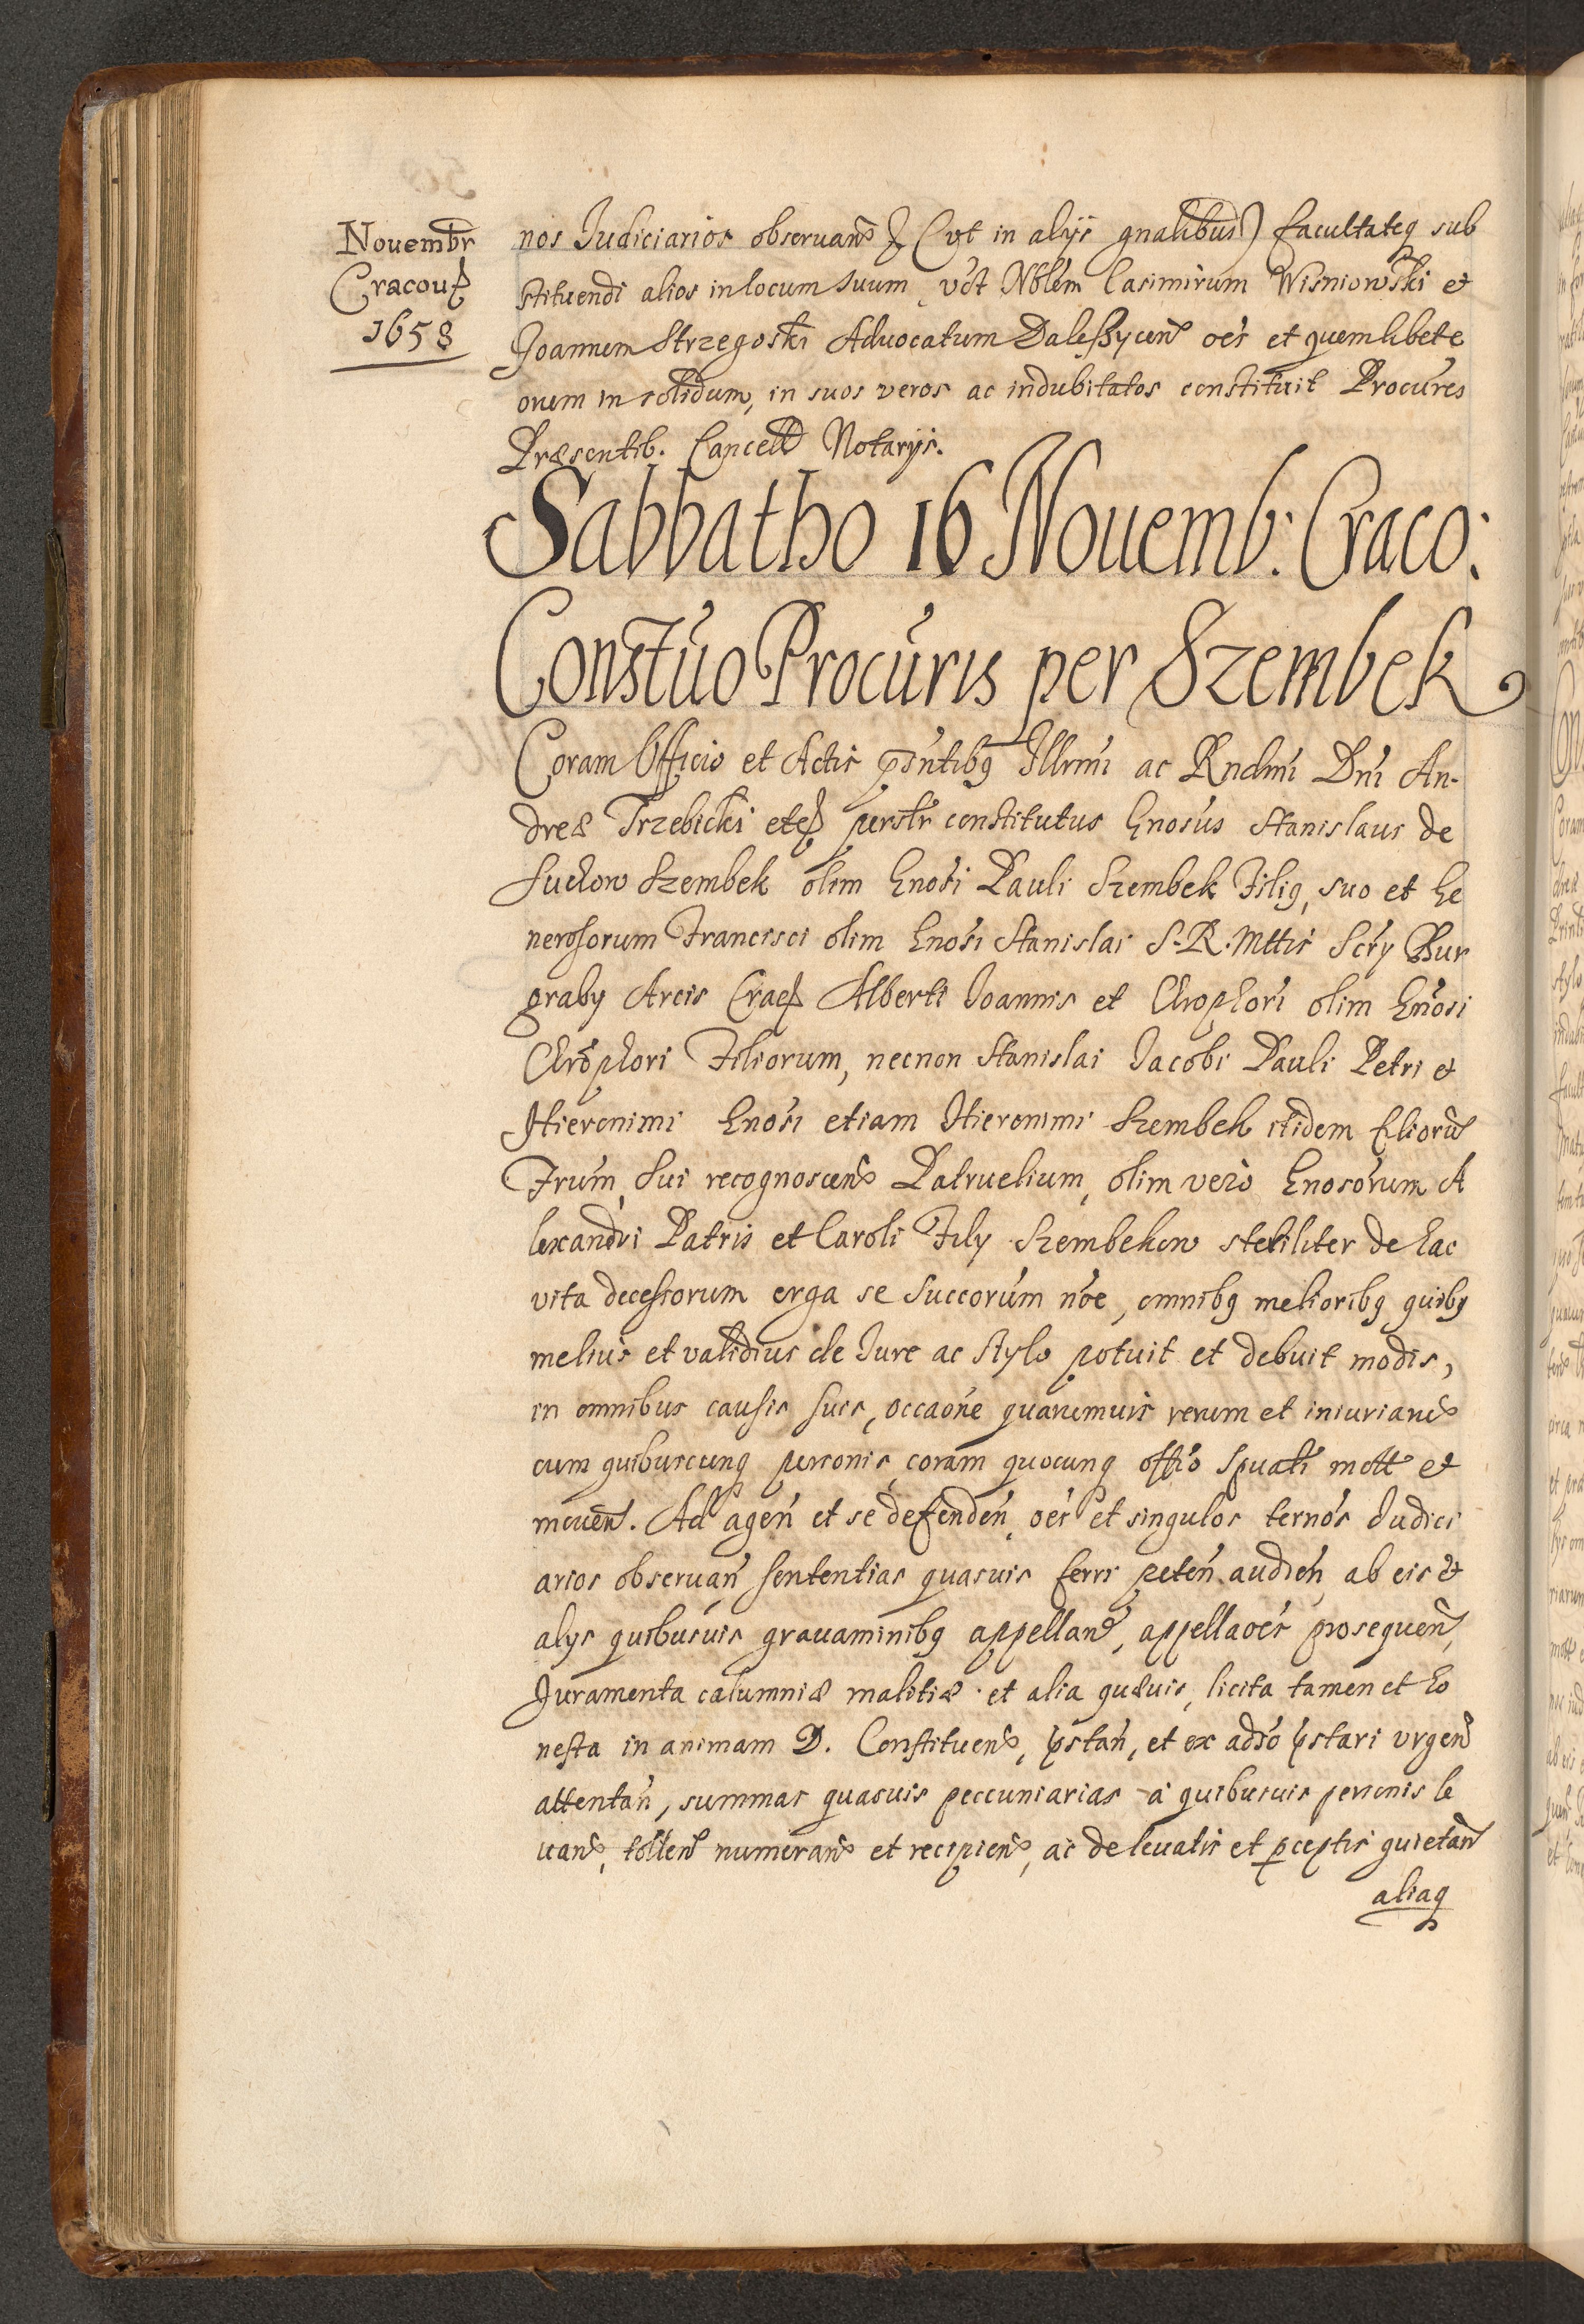 Nouembr
Cracou
1658
nos Judiciarios obseruan & (vt in alijs gnalibus) facultateq sub
stituendi alios in locum suum, vdt Nblem Casimirum Wisniowski et
Joannem Strzegoski Aduocatum Daleszycen oes et quemlibet e
orum in solidum, in suos veros ac indubitatos constituit Procures
Præsentib. Cancell Notarijs.
Sabbatho 16 Nouemb: Craco:
Constuo Procuris per Szembek
Coram Officio et Actis pntibq Illrmi ac Rndmi Dni An-
dreæ Trzebicki etc perslr constitutus Gnosus Stanislaus de
Suchow Szembek olim Gnosi Pauli Szembek Filiq, suo et Ge
nerosorum Francisci olim Gnosi Stanislai S. R. Mttis Scry Bur
graby Arcis Crac Alberti Joannis et Chrophori olim Gnosi
Chrophori Filiorum, necnon Stanislai Jacobi Pauli Petri et
Hieronimi Gnosi etiam Hieronimi Szembek itidem filioru
Frum, sui recognoscen Patruelium, olim vero Gnosorum A
lexandri Patris et Caroli Fily Szembekow steriliter de hac
vita decessorum erga se Succorum noe, omnibq melioribq quibq
melius et validius de Jure ac stylo potuit et debuit modis,
in omnibus causis suis, occaone quarumuis rerum et iniuriaru
cum quibuscunq personis, coram quocunq offio Spuali mott et
mouen. Ad agen et se defenden, oes et singulos ternos Judici
arios obseruan sententias quasuis ferri peten audien ab eis et
alys quibusuis grauaminibq appellan, appellaoes prosequen,
Juramenta calumniæ malitiæ et alia quæuis, licita tamen et ho
nesta in animam D. Constituen, pstan, et ex adso pstari vrgen
attentan, summas quasuis peccuniarias a quibusuis personis le
uan, tollen numeran et recipien, ac de leuatis et pceptis quietan
aliaq